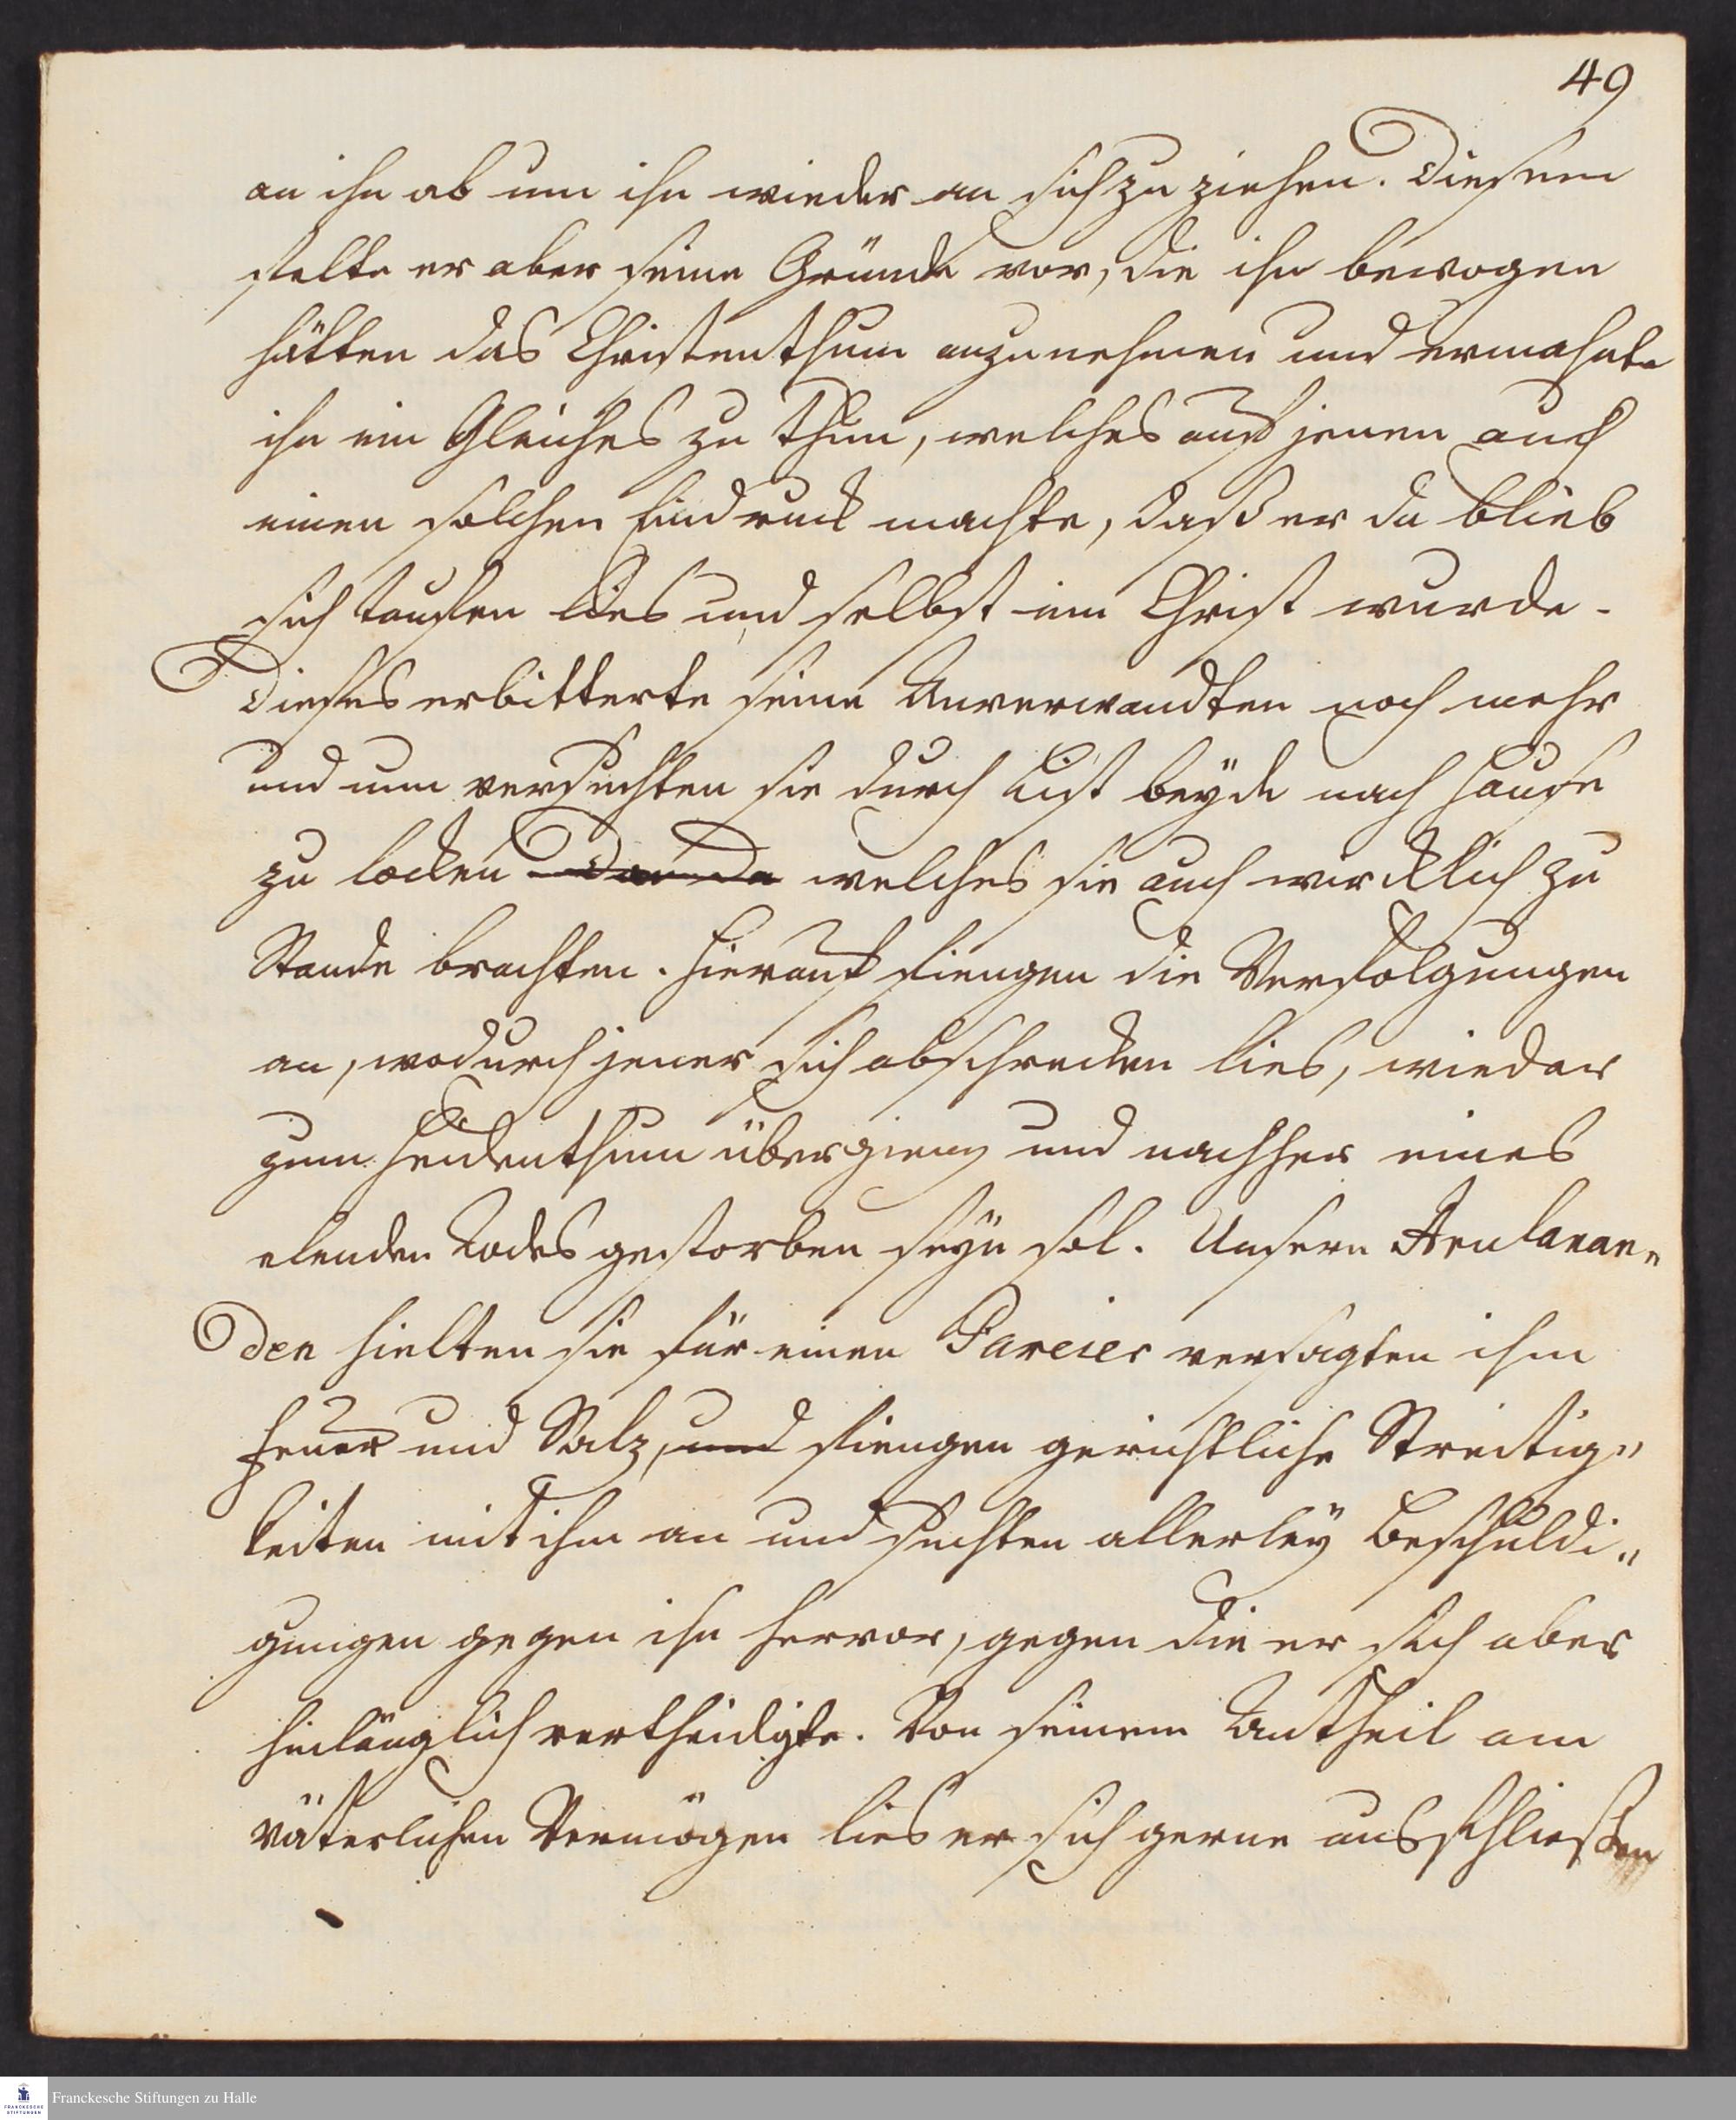 49
an ihn ab um ihn wieder an sich zu ziehen. Diesem
stelte er aber seine Gründe vor, die ihn bewogen
hätten das Christenthum anzunehmen und ermahnte
ihn ein Gleiches zu thun, welches auf jenen auch
einen solchen Eindruck machte, daß er da blieb
sich taufen lies und selbst ein Christ wurde.
Dieses erbitterte seine Anverwandten noch mehr
und nun versuchten sie durch List beyde nach Hause
zu locken welches sie auch wircklich zu
Stande brachten. Hierauf fiengen die Verfolgungen
an, wodurch jener sich abschrecken lies, wieder
zum Heidenthum übergieng und nachher eines
elenden Todes gestorben seyn sol. Unsern Arulanan„
den hielten sie für einen Pareier versagten ihm
Feuer und Salz, und fiengen gerichtliche Streitig„
keiten mit ihm an und suchten allerley Beschuldi„
gungen gegen ihn hervor, gegen die er sich aber
hinlänglich vertheidigte. Von seinem Antheil am
väterlichen Vermögen lies er sich gerne ausschließen
Franckesche Stiftungen zu Halle
FRANCKESCHE
STIFTUNGEN